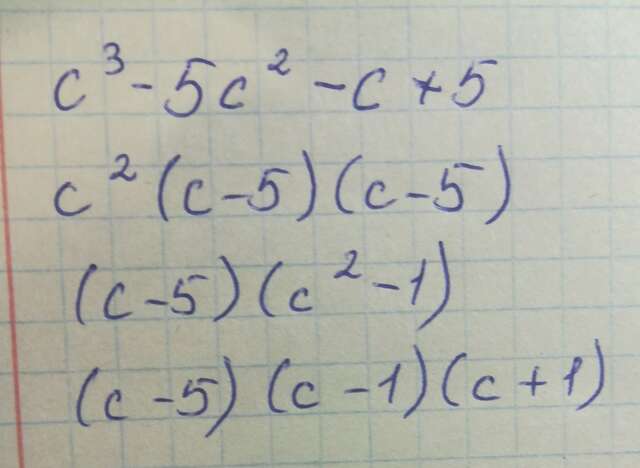 c³ - 5c² - c + 5
c² (c - 5) (c - 5)
(c - 5) (c² - 1)
(c - 5) (c - 1) (c + 1)